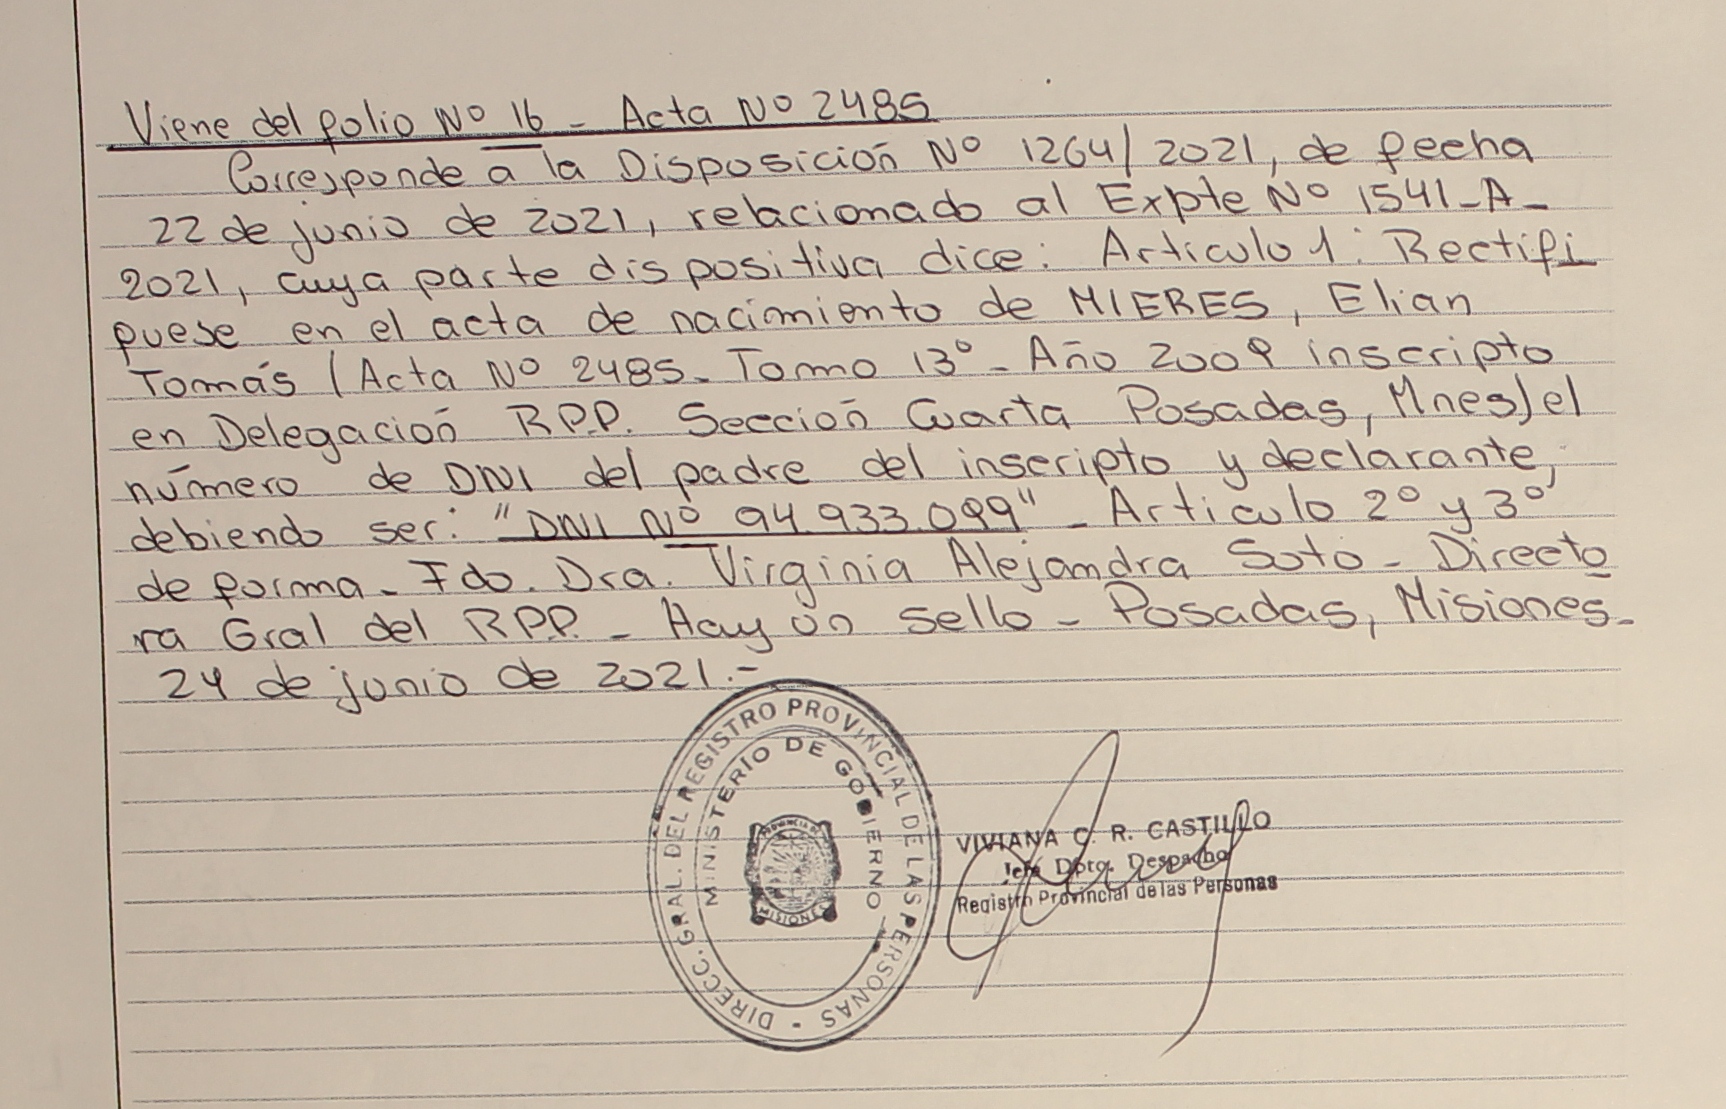 Viene del folio Nº 16 - Acta Nº 2485
Corresponde a la Disposición Nº 1264/2021, de fecha
22 de junio de 2021, relacionado al Expte Nº 1541-A-
2021, cuya parte dispositiva dice: Articulo 1: Rectifi
quese en el acta de nacimiento de MIERES, Elian
Tomás (Acta Nº 2485. Tomo 13º - Año 2009 inscripto
en Delegación R.P.P. Sección Cuarta Posadas, Mnes) el
número de DNI del padre del inscripto y declarante,
debiendo ser: "DNI Nº 94.933.099" - Articulo 2º y 3º
de forma - Fdo. Dra. Virginia Alejandra Soto - Directo
ra Gral del R.P.P. - Hay un sello - Posadas, Misiones.
24 de junio de 2021.-
DIRECC. GRAL. DEL REGISTRO PROVINCIAL DE LAS PERSONAS -
MINISTERIO DE GOBIERNO
PROVINCIA DE
MISIONES
VIVIANA C. R. CASTILLO
Jefa Dpto. Despacho
Registro Provincial de las Personas